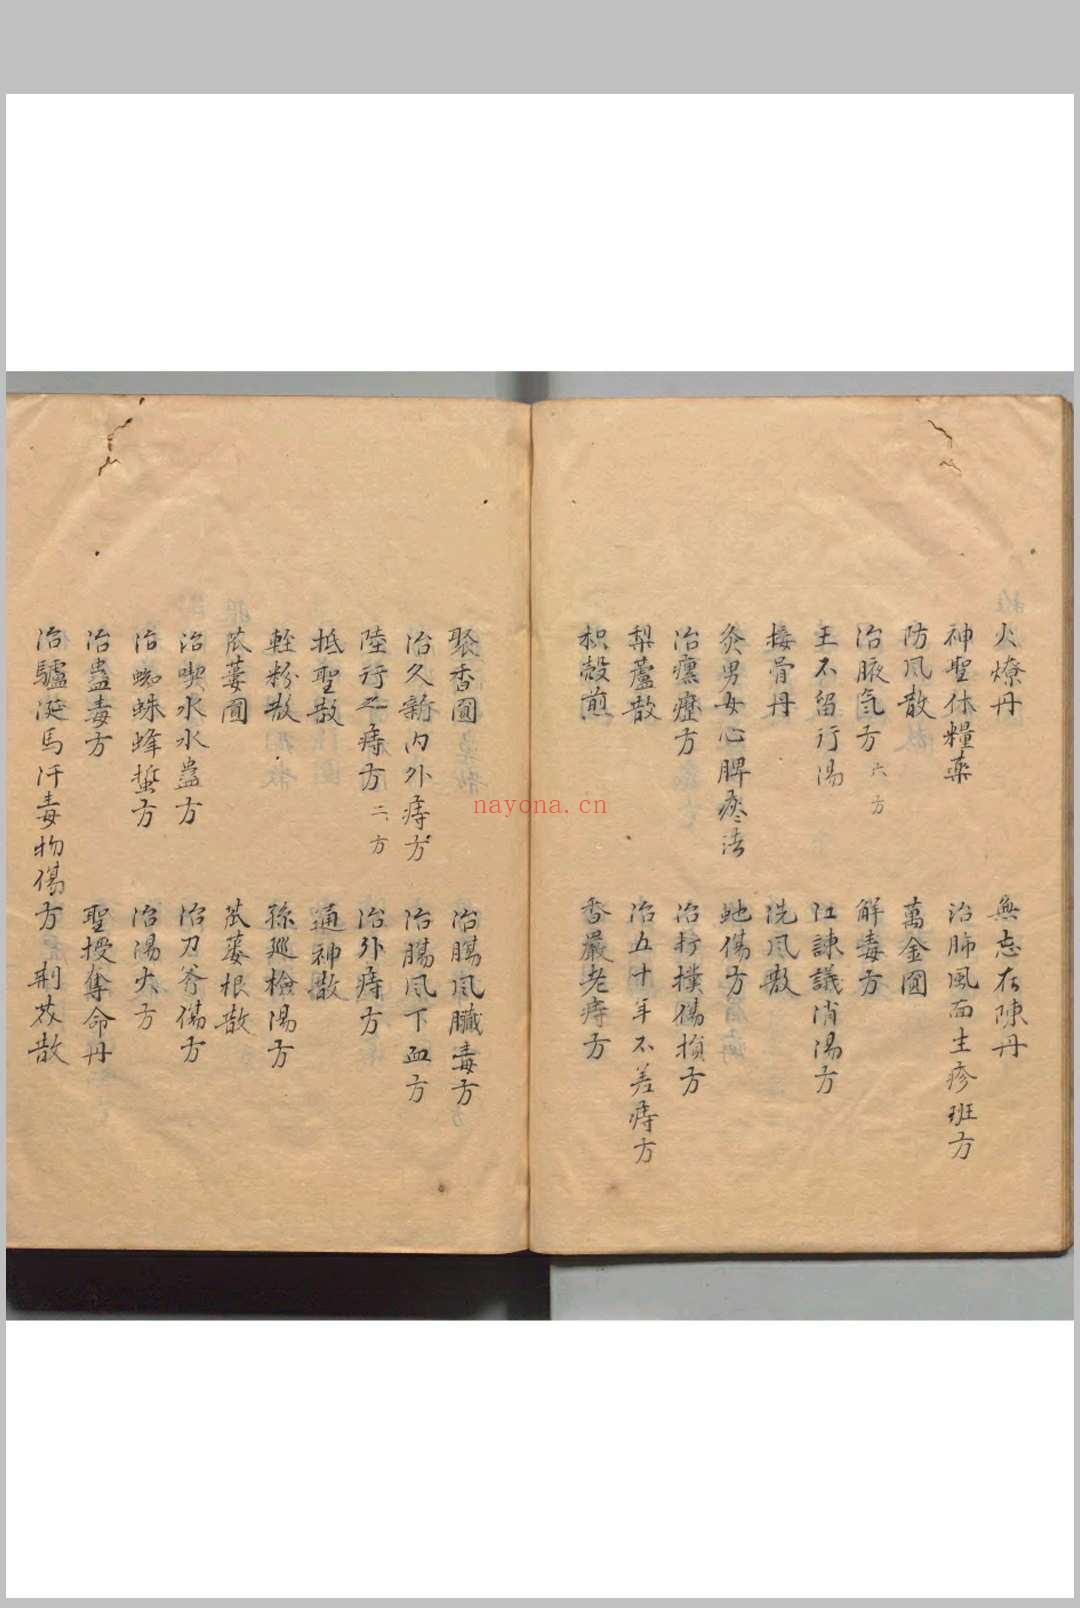 火燎丹　無忘在陳丹
神聖休糧藥　治肺風面生疹班方
防风散　萬金圓
治腋氣方六方　解毒方
王不留行湯　江諫議消湯方
接骨丹　洗风散
灸男女心脾瘵法　虵傷方
治瘰癧方　治打撲傷損方
梨蘆散　治五十年不差痔方
枳殼煎　香嚴老痔方
聚香圓　治腸风臟毒方
治久新内外痔方　治腸风下血方
陸行之痔方二方　治外痔方
抵聖散　通神散
輕粉散　孫巡檢湯方
苽蔞圓　苽蔞根散
治喫水水蠱方　治刀斧傷方
治蜘蛛蜂蜇方　治湯火方
治蠱毒方　聖授奪命丹
治驢涎馬汗毒物傷方　荆芥散
nayona.cn